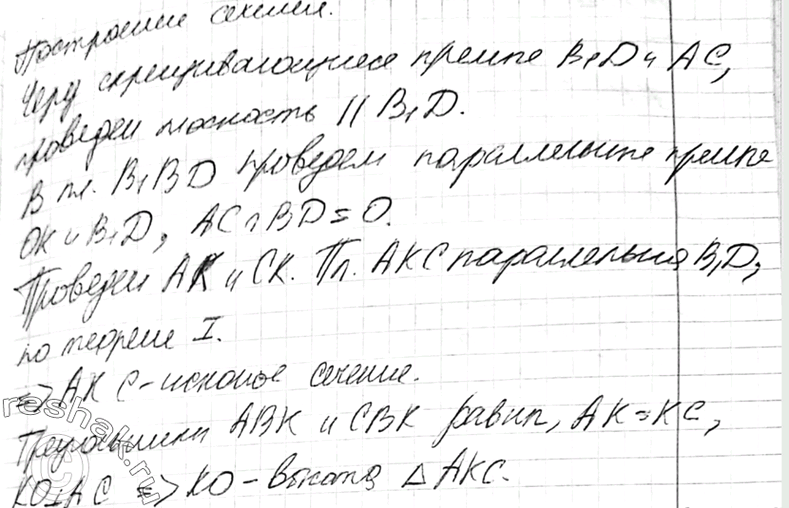 Построение сечения.
Через скрещивающиеся прямые B₁D и AC,
проведем плоскость || B₁D.
В пл. B₁BD проведем параллельные прямые
OK и B₁D, AC∩BD=O.
Проведем AK и CK. Пл. AKC параллельна B₁D,
по теореме I.
=> AKC - искомое сечение.
Треугольники ABK и CBK равны, AK=KC,
KO⊥AC => KO - высота △AKC.
reshak.ru